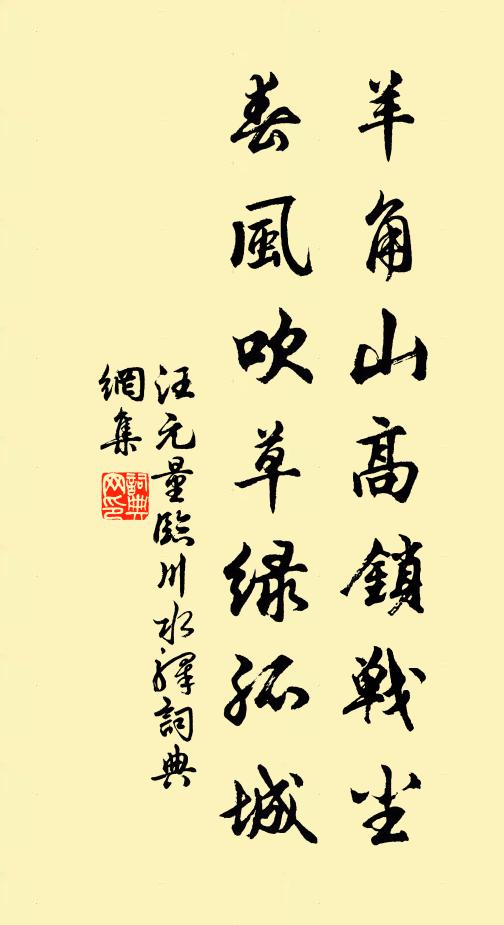 羊角山高鎖戦尘
春風吹草緑孤城
汪元量臨川水驛詞典
網集
詞典
网印